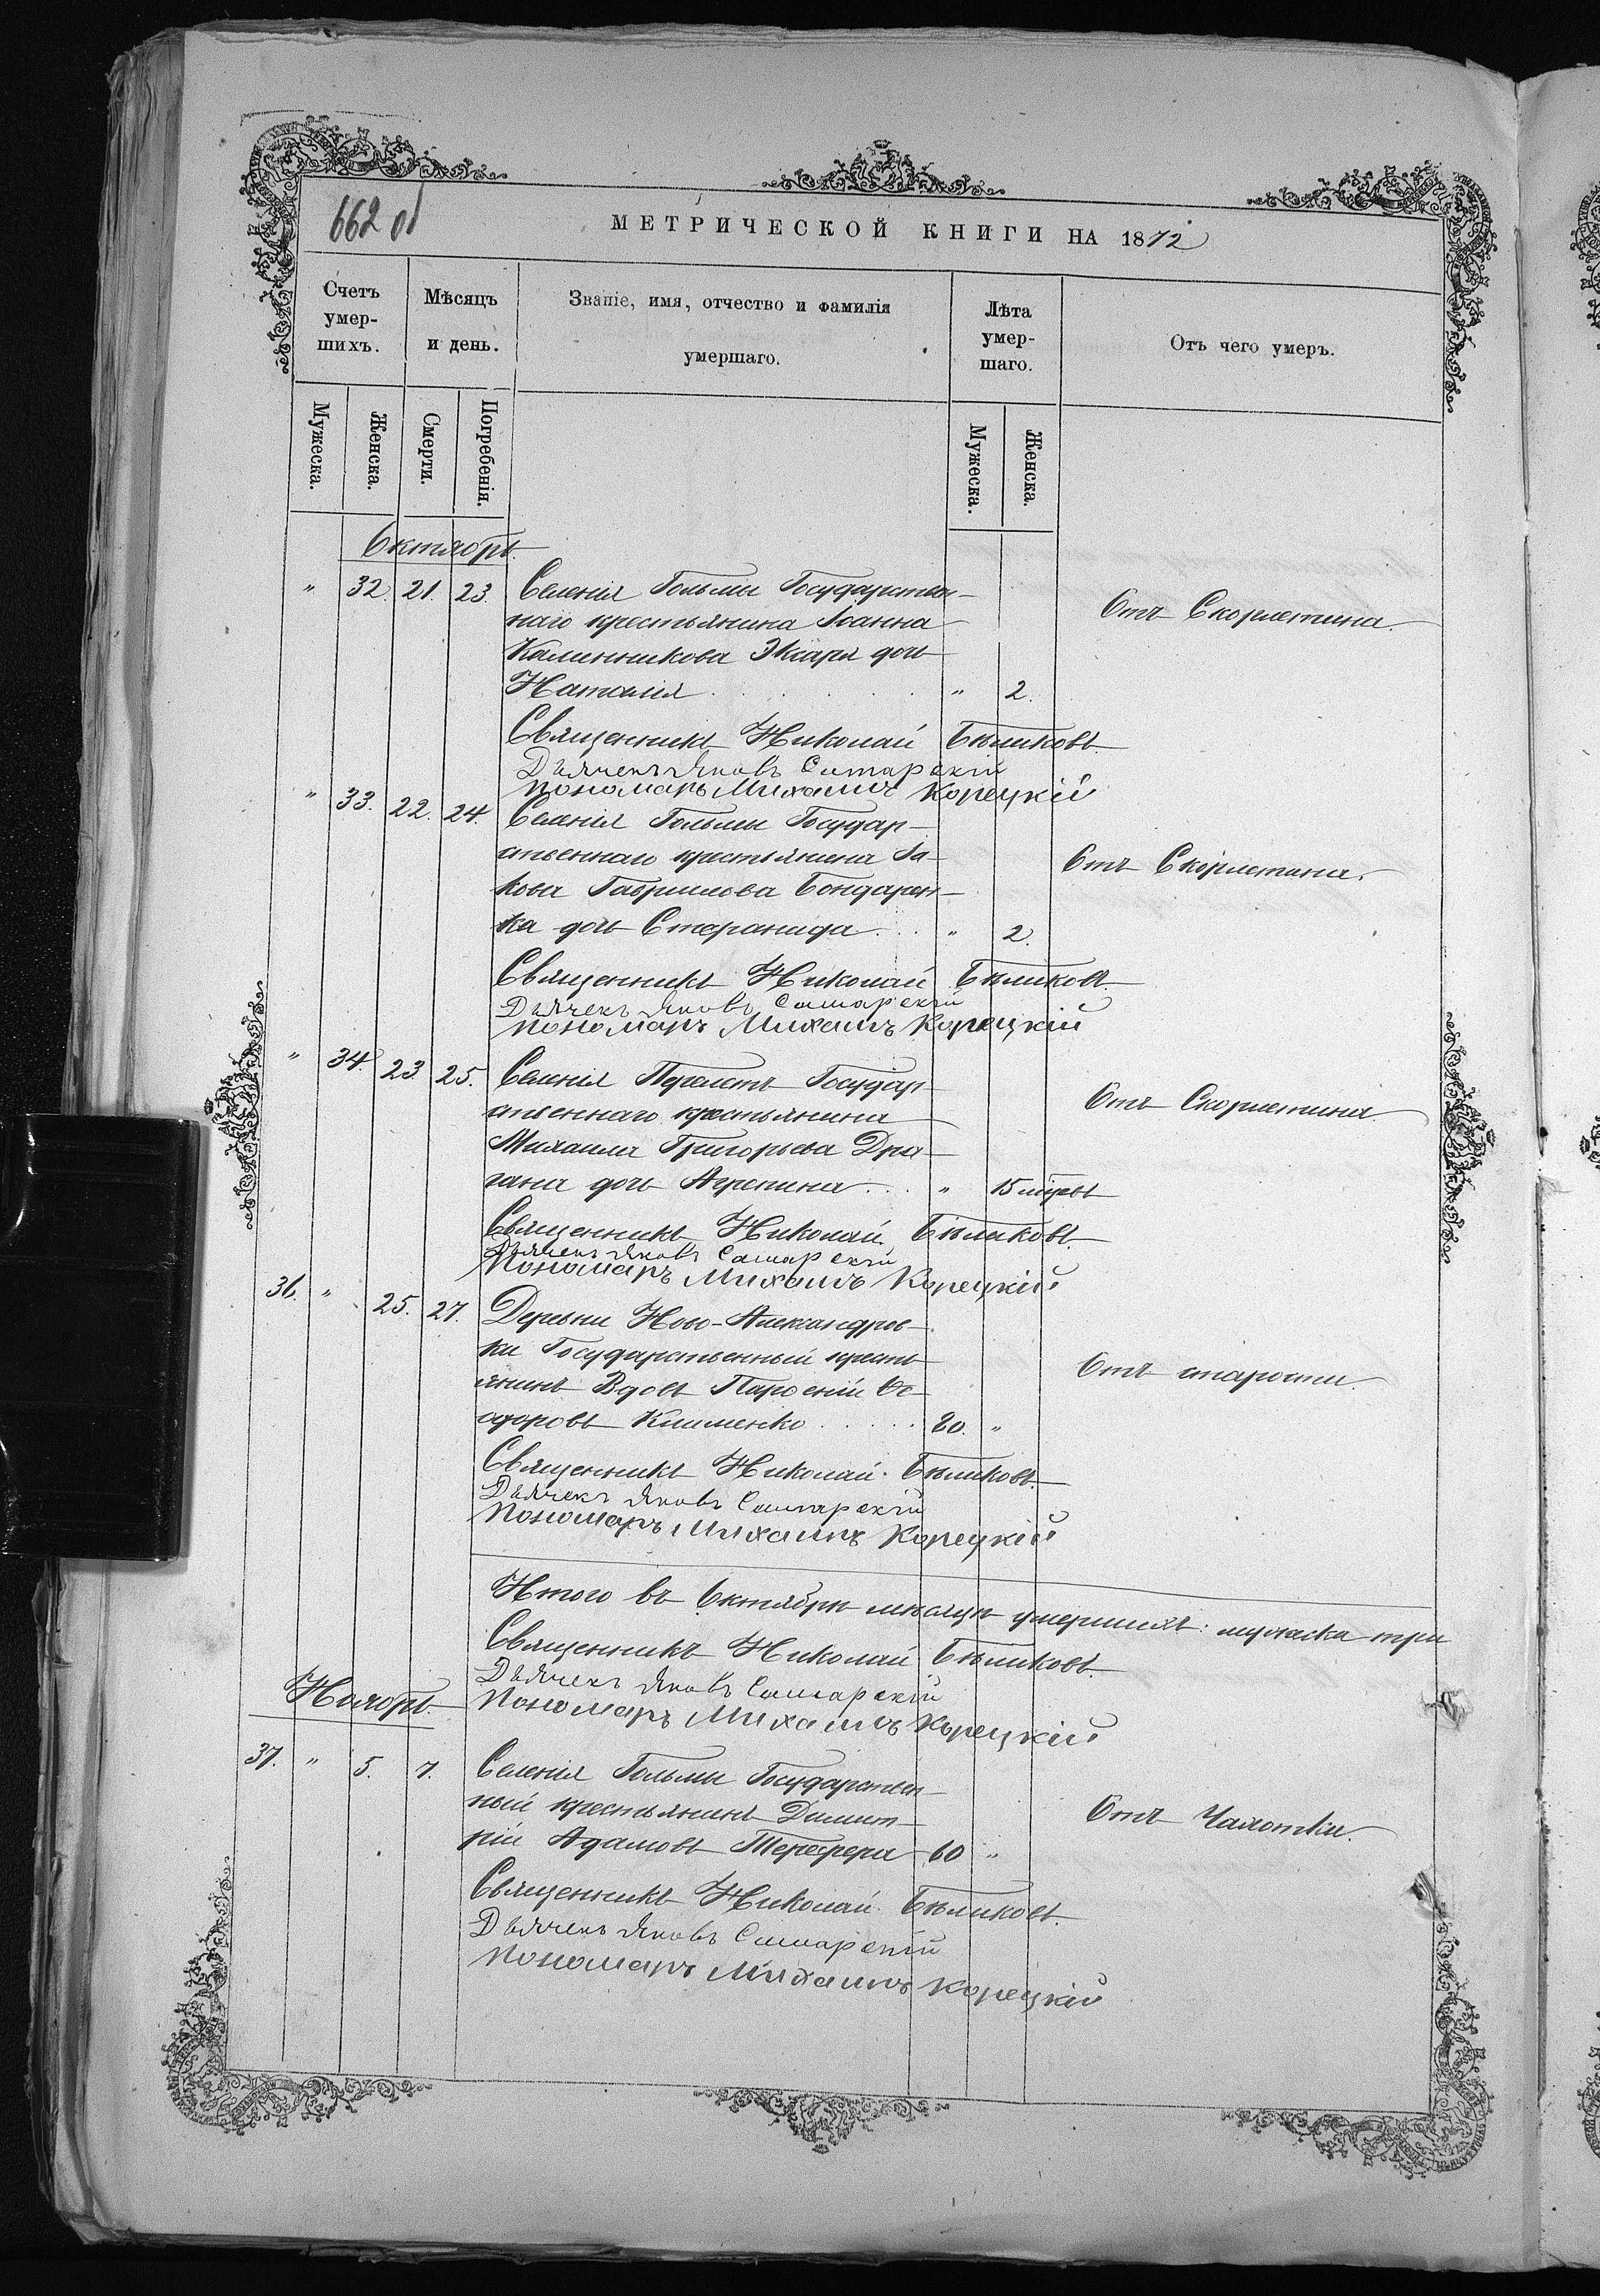 662 об
МЕТРИЧЕСКОЙ КНИГИ НА 1872
Счетъ умер-шихъ.
Мѣсяцъ и день.
Званіе, имя, отчество и фамилія умершаго.
Лѣта умер-шаго.
Отъ чего умеръ.
Мужеска. Женска. Смерти. Погребенія. Мужеска. Женска.
Октябрь.
" 32. 21. 23. Селенія Гольмы Государствен-
наго крестьянина Іоанна
Калинникова дочь
Наталія " 2. Отъ Скорлетина.
Священникъ Николай Бѣликовъ
Дьячекъ Яковъ Самарскій
Пономарь Михаилъ Корецкій
" 33. 22. 24. Селенія Гольмы Государ-
ственнаго крестьянина Іа-
кова Гаврилова Бондарен-
ка дочь Стефанида " 2. Отъ Скорлетина.
Священникъ Николай Бѣликовъ.
Дьячекъ Яковъ Самарскій
Пономарь Михаилъ Корецкій
" 34. 23 25. Селенія Перелетъ Государ-
ственнаго крестьянина
Михаила Григорьева Дра-
гана дочь Агрепина " 15 мѣсец Отъ Скорлетина
Священникъ Николай Бѣликовъ.
Дьячекъ Яковъ Самарскій
Пономарь Михаилъ Корецкій
36. " 25. 27. Деревни Ново-Александров-
ки Государственный кресть-
янинъ Вдовъ Парѳеній Ѳе-
одоровъ Клименко 80. " Отъ старости.
Священникъ Николай Бѣликовъ.
Дьячекъ Яковъ Самарскій
Пономарь Михаилъ Корецкій
Итого въ Октябрѣ мѣсяцѣ умершихъ: мужеска три
Священникъ Николай Бѣликовъ.
Дьячекъ Яковъ Самарскій
Пономарь Михаилъ Корецкій
Ноябрь.
37. " 5. 7. Селенія Гольмы Государствен-
ный крестьянинъ Димит-
рій Адамовъ 60 " Отъ Чахотки.
Священникъ Николай Бѣликовъ.
Дьячекъ Яковъ Самарскій
Пономарь Михаилъ Корецкій